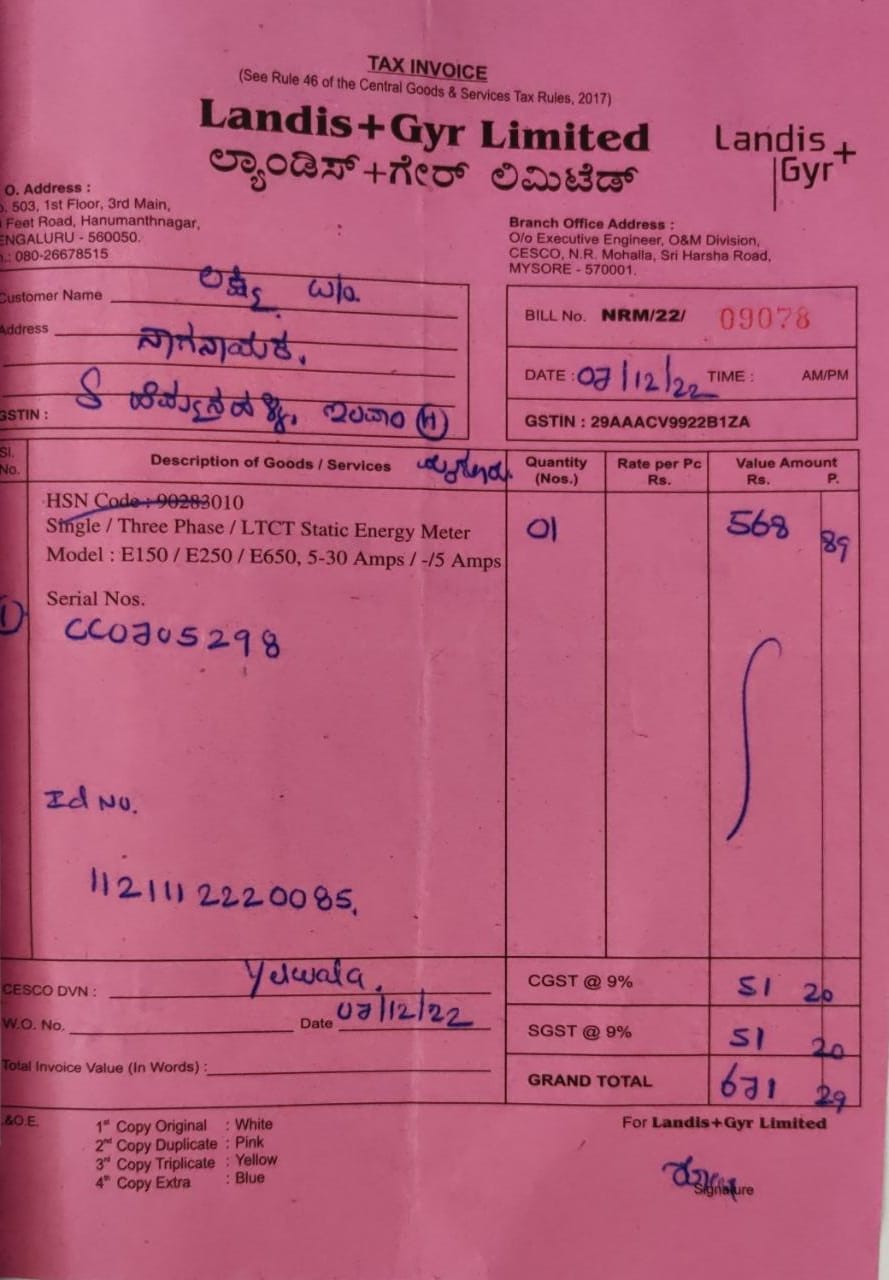 TAX INVOICE
(See Rule 46 of the Central Goods & Services Tax Rules, 2017)
Landis+Gyr Limited
ಲ್ಯಾಂಡಿಸ್+ಗೇರ್ ಲಿಮಿಟೆಡ್
Landis+
Gyr
O. Address :
503, 1st Floor, 3rd Main,
Feet Road, Hanumanthnagar,
ENGALURU - 560050.
080-26678515
Branch Office Address :
O/o Executive Engineer, O&M Division,
CESCO, N.R. Mohalla, Sri Harsha Road,
MYSORE - 570001.
Customer Name ಲಕ್ಷ್ಮಿ W/o.
Address ನಾಗನಾಯಕ.
GSTIN : (H)
BILL No. NRM/22/ 09078
DATE : 07/12/22 TIME : AM/PM
GSTIN : 29AAACV9922B1ZA
Sl. No. Description of Goods / Services Quantity (Nos.) Rate per Pc Rs. Value Amount Rs. P.
HSN Code : 90283010
Single / Three Phase / LTCT Static Energy Meter 01 568 89
Model : E150 / E250 / E650, 5-30 Amps / -/5 Amps
Serial Nos.
1) CC0705298
Id No.
1121112220085.
CESCO DVN : Yelwala.
W.O. No. Date 07/12/22
Total Invoice Value (In Words) :
CGST @ 9% 51 20
SGST @ 9% 51 20
GRAND TOTAL 671 29
&O.E.
1st Copy Original : White
2nd Copy Duplicate : Pink
3rd Copy Triplicate : Yellow
4th Copy Extra : Blue
For Landis+Gyr Limited
Signature